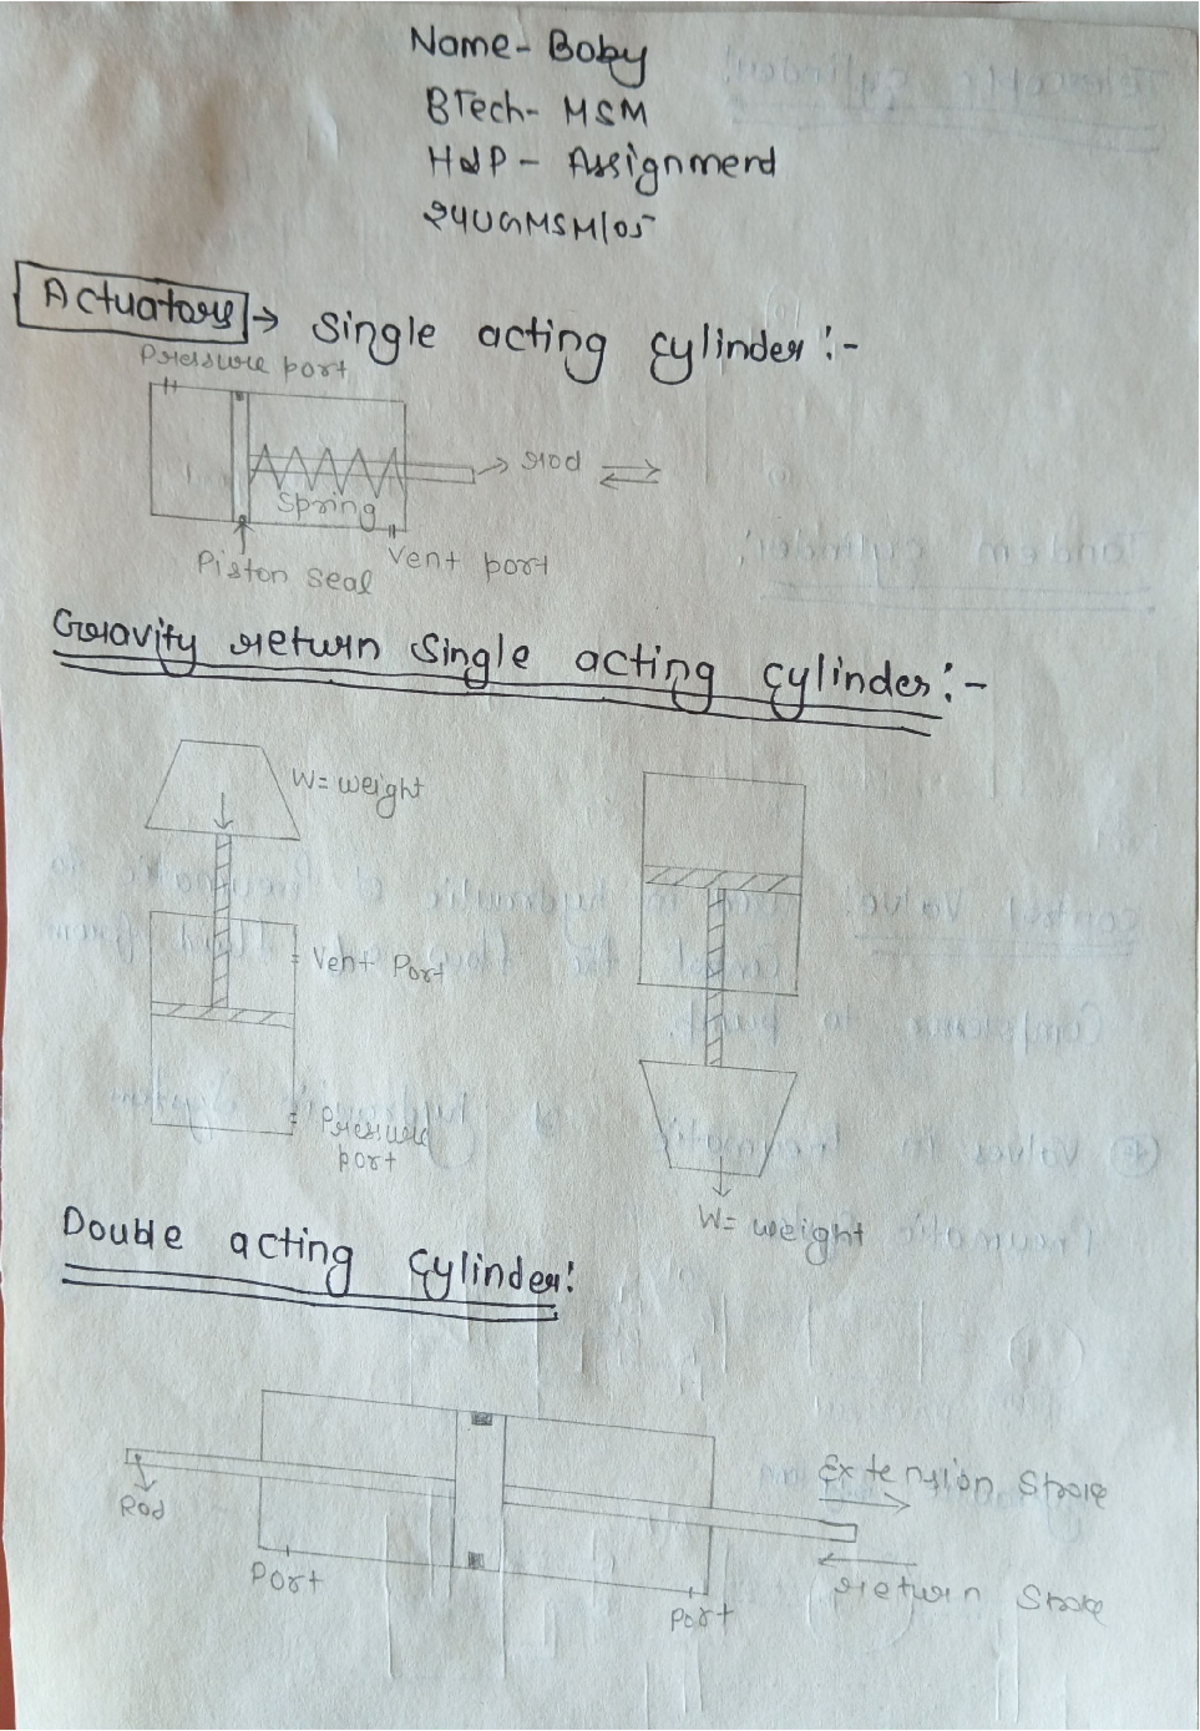 Name- Boby
BTech- MSM
H&P - Assignmend
24UGMSM105
Actuators → Single acting cylinder:-
Pressure port
→ rod
Spring
Vent port
Piston seal
Gravity return single acting cylinder:-
W= weight
Vent Port
Pressure
port
W= weight
Double acting cylinder:
Extension
Rod
Port
return
Port